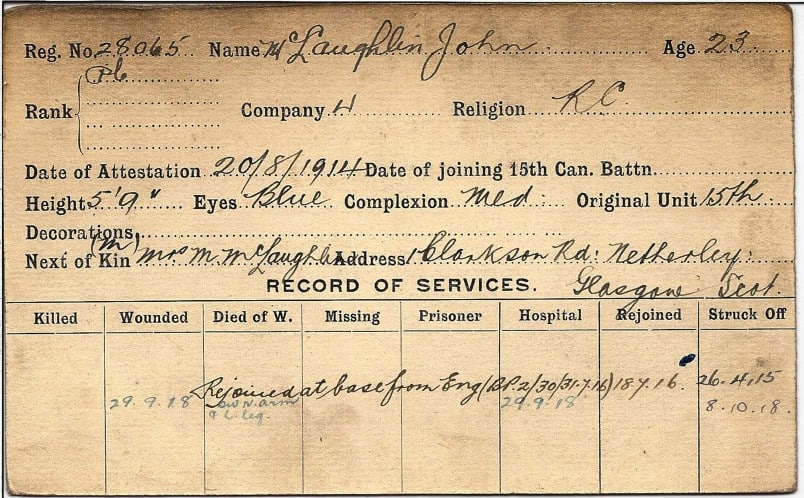 Reg. No. 28065 Name McLaughlin John Age 23
Pte
Rank Company 4 Religion R C
Date of Attestation 20/8/1914 Date of joining 15th Can. Battn.
Height 5'9" Eyes Blue Complexion Med. Original Unit 15th
Decorations
(M)
Next of Kin Mrs M. McLaughlin Address 1 Clarkson Rd: Netherley:
RECORD OF SERVICES. Glasgow Scot.
Killed Wounded Died of W. Missing Prisoner Hospital Rejoined Struck Off
Rejoined at base from Eng (B.P. 2/30/31.7.16) 18.7.16. 26.4.15
29.9.18 arm 29.9.18 8.10.18.
& L. leg.